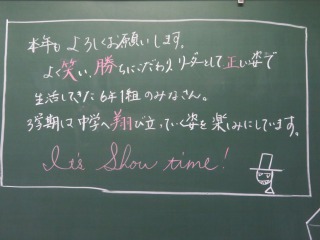 本年もよろしくお願いします。
よく笑い、勝ちにこだわり、リーダーとして正しい姿で
生活してきた6年1組のみなさん。
3学期は中学へ翔び立っていく姿を楽しみにしています。
It's Show time!